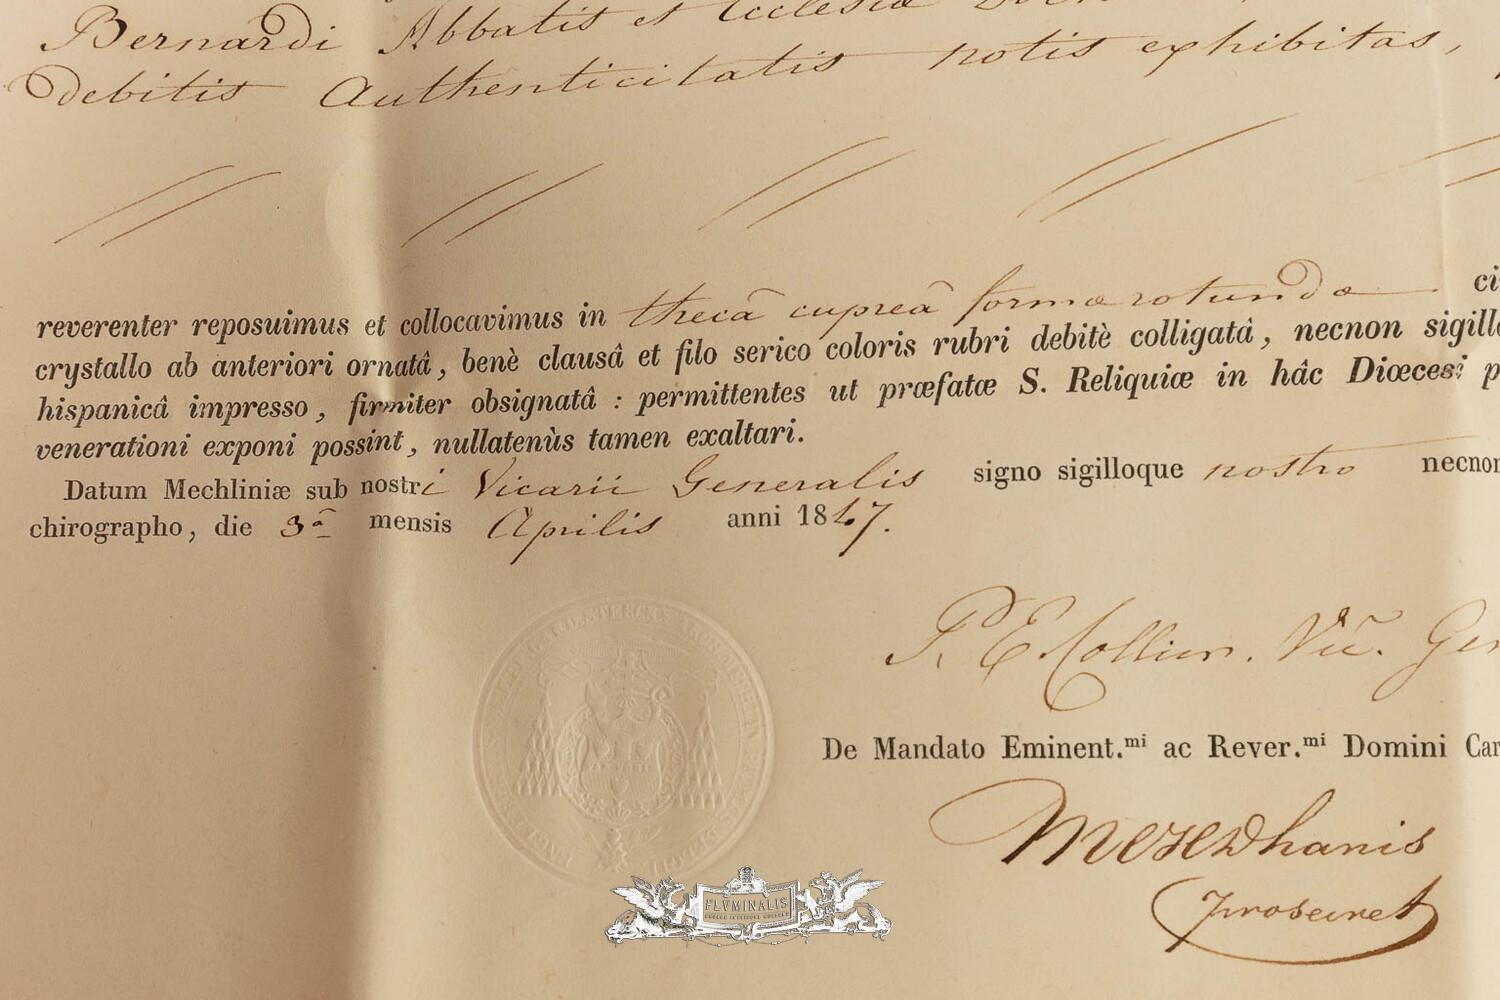 Bernardi Abbatis et Ecclesiæ
debitis Authenticitatis notis exhibitas,
reverenter reposuimus et collocavimus in thecâ cupreâ formæ rotundæ
crystallo ab anteriori ornatâ, benè clausâ et filo serico coloris rubri debitè colligatâ, necnon
hispanicâ impresso, firmiter obsignatâ : permittentes ut præfatæ S. Reliquiæ in hâc Diœcesi
venerationi exponi possint, nullatenùs tamen exaltari.
Datum Mechliniæ sub nostri Vicarii Generalis signo sigilloque nostro necnon
chirographo, die 3â mensis Aprilis anni 1847.
P. E. Collier. Vic. Gen
De Mandato Eminent.mi ac Rever.mi Domini Car
prosecret
FLVMINALIS